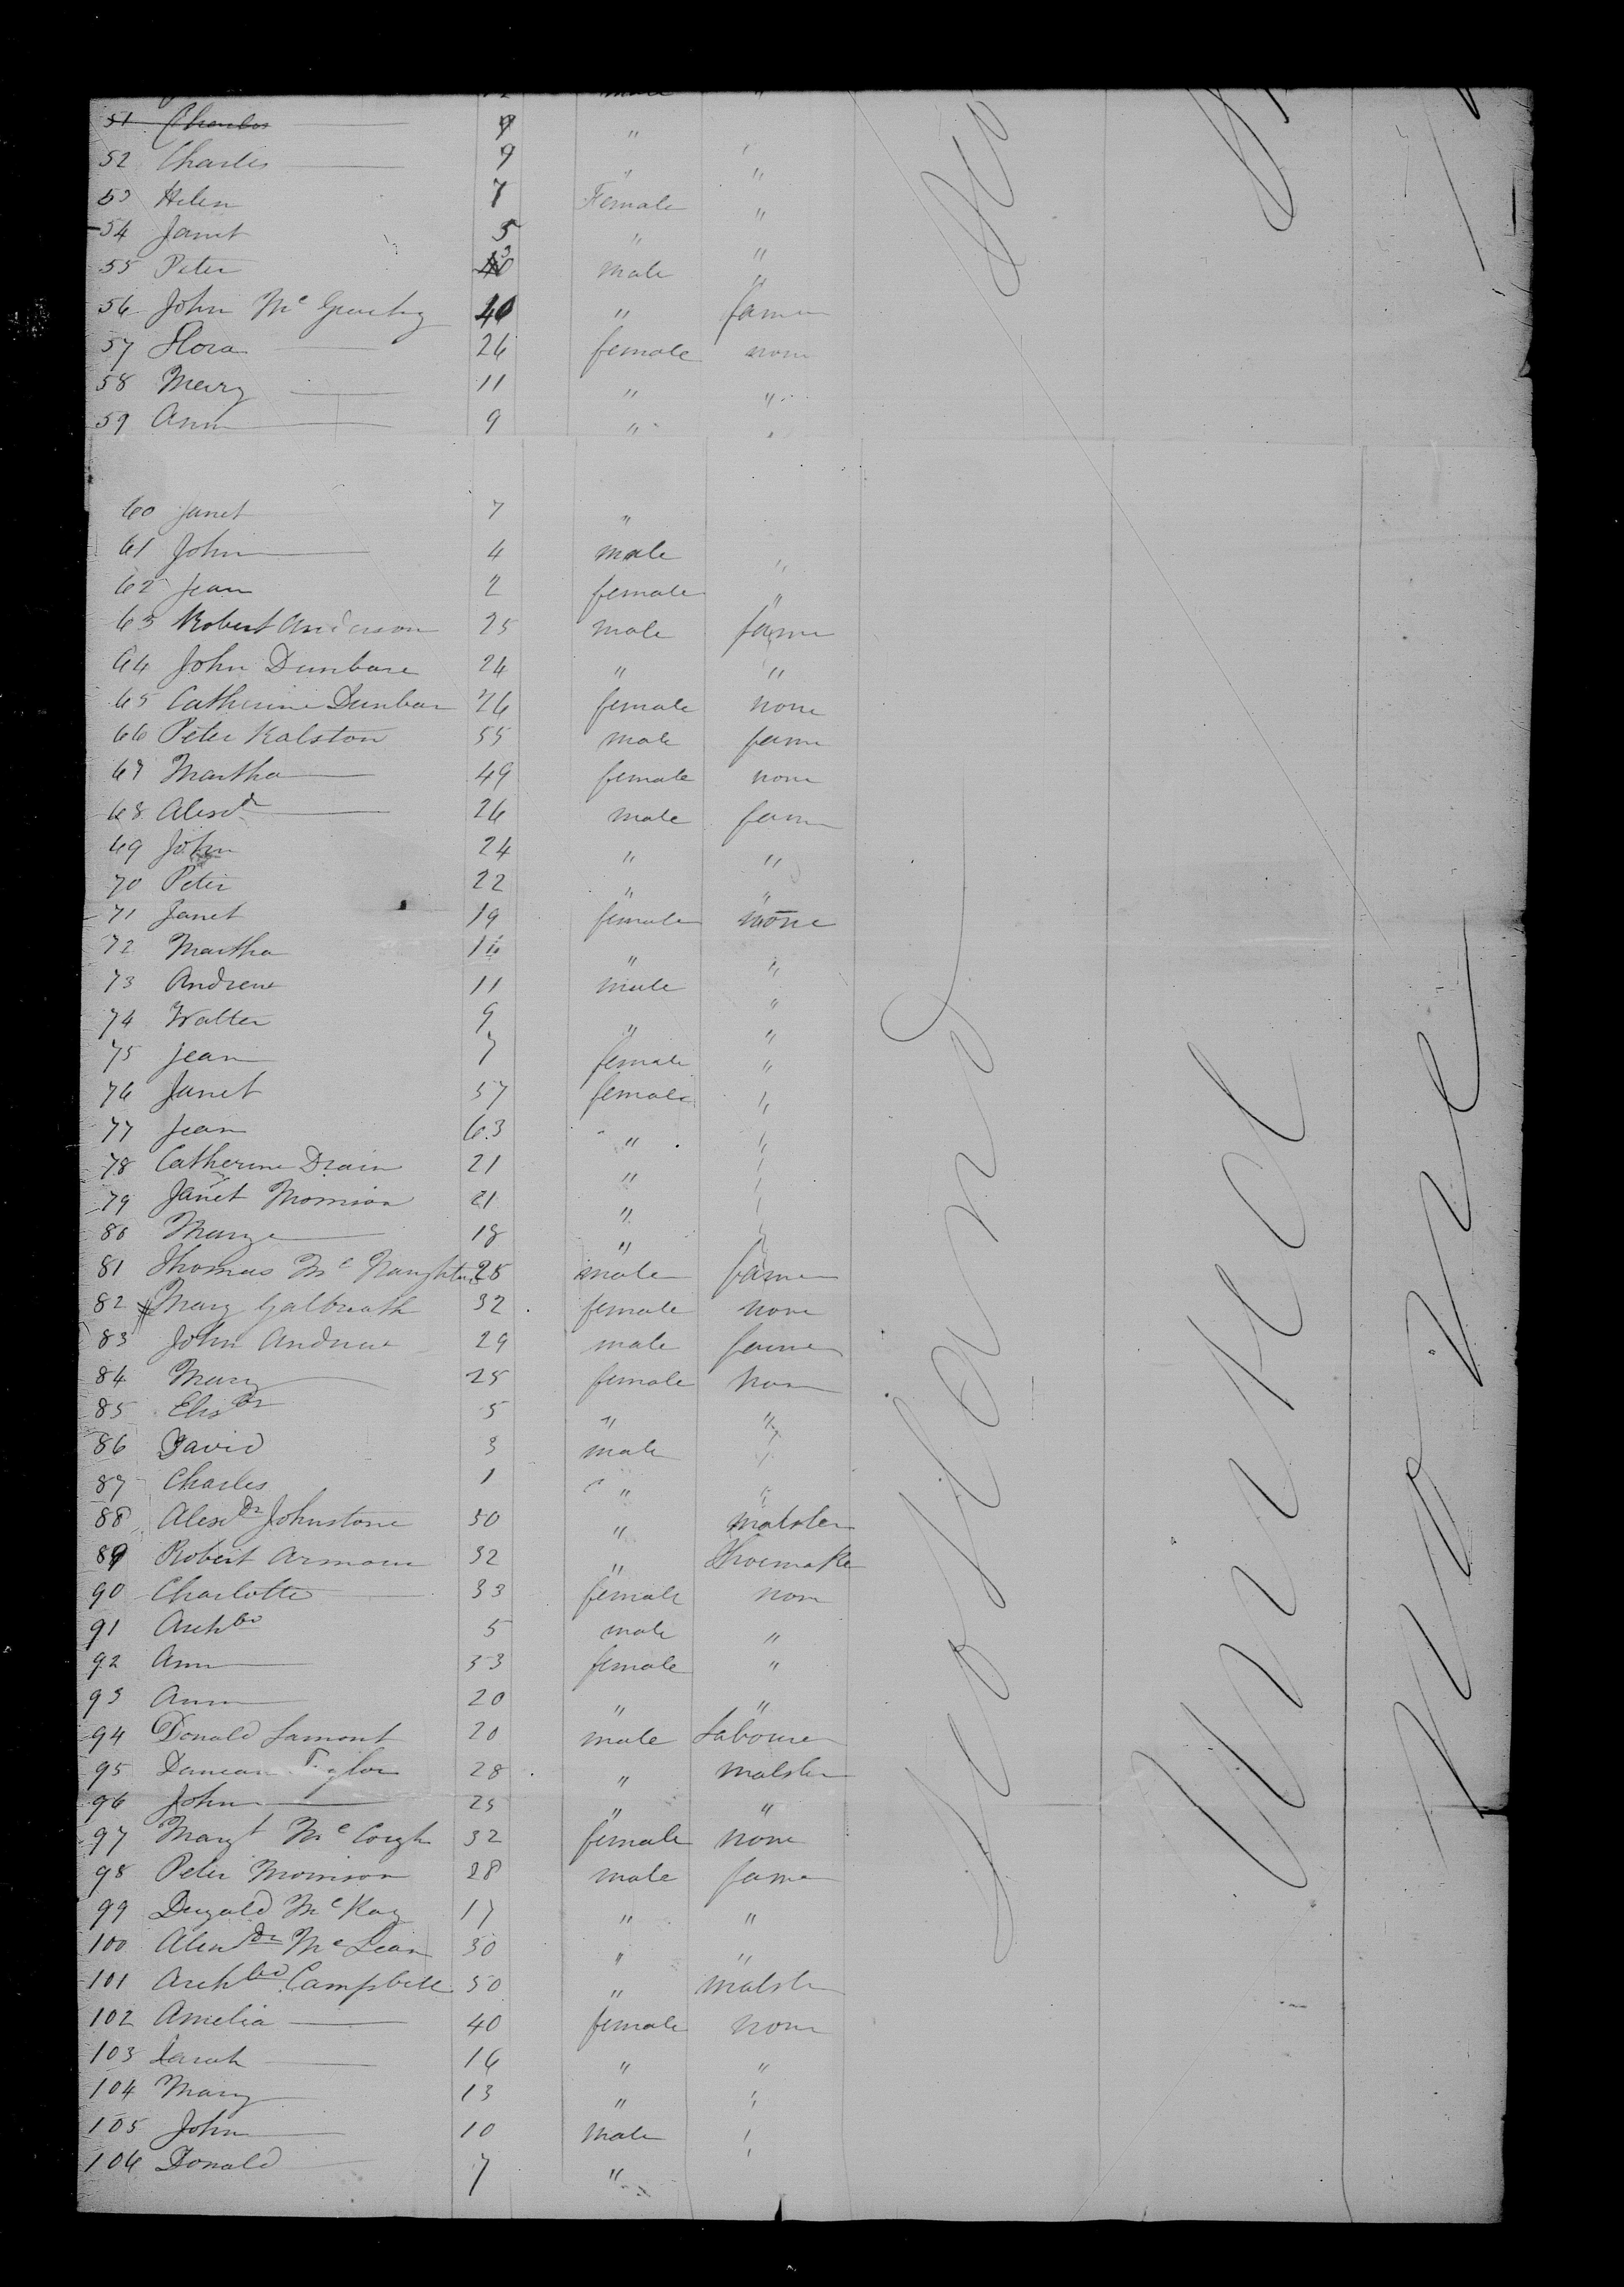 51 Charles 9 "
52 Charles 9 " "
53 Helen 7 Female "
54 Janet 5 " "
55 Peter 3 male "
56 John Mc 40 " farmer
57 Flora 26 female none
58 Mary 11 " "
59 Ann 9 " "
60 Janet 7 "
61 John 4 male "
62 Jean 2 female "
63 Robert Anderson 25 male farmer
64 John Dunbare 24 " "
65 Catherine Dunbar 26 female none
66 Peter Ralston 55 male farmer
67 Martha 49 female none
68 Alexdr 26 male farmer
69 John 24 " "
70 Peter 22 " "
71 Janet 19 female none
72 Martha " "
73 Andrew 11 male "
74 Walter 9 " "
75 Jean 7 female "
76 Janet 57 female "
77 Jean 63 " "
78 Catherine Drain 21 " "
79 Janet Morrison 21 " "
80 Mary 18 " "
81 Thomas Mc Naughton 25 male farmer
82 Mary Galbreath 32 female none
83 John Andrew 29 male farmer
84 Mary 25 female none
85 Elisbt 5 " "
86 David 3 male "
87 Charles 1 " "
88 Alexdr Johnstone 30 " malster
89 Robert Armour 32 " Shoemaker
90 Charlotte 33 female none
91 Archbd 5 male "
92 Ann 33 female "
93 Ann 20 " "
94 Donald Lamont 20 male Labourer
95 Duncan Taylor 28 " malster
96 John 25 " "
97 Margt Mc 32 female none
98 Peter Morrison 28 male farmer
99 Dugald Mc Kay 17 " "
100 Alexdr Mc Lean 30 " "
101 Archbd Campbell 50 " malster
102 Amelia 40 female none
103 Sarah 16 " "
104 Mary 13 " "
105 John 10 male "
106 Donald 7 "
Scotland
United